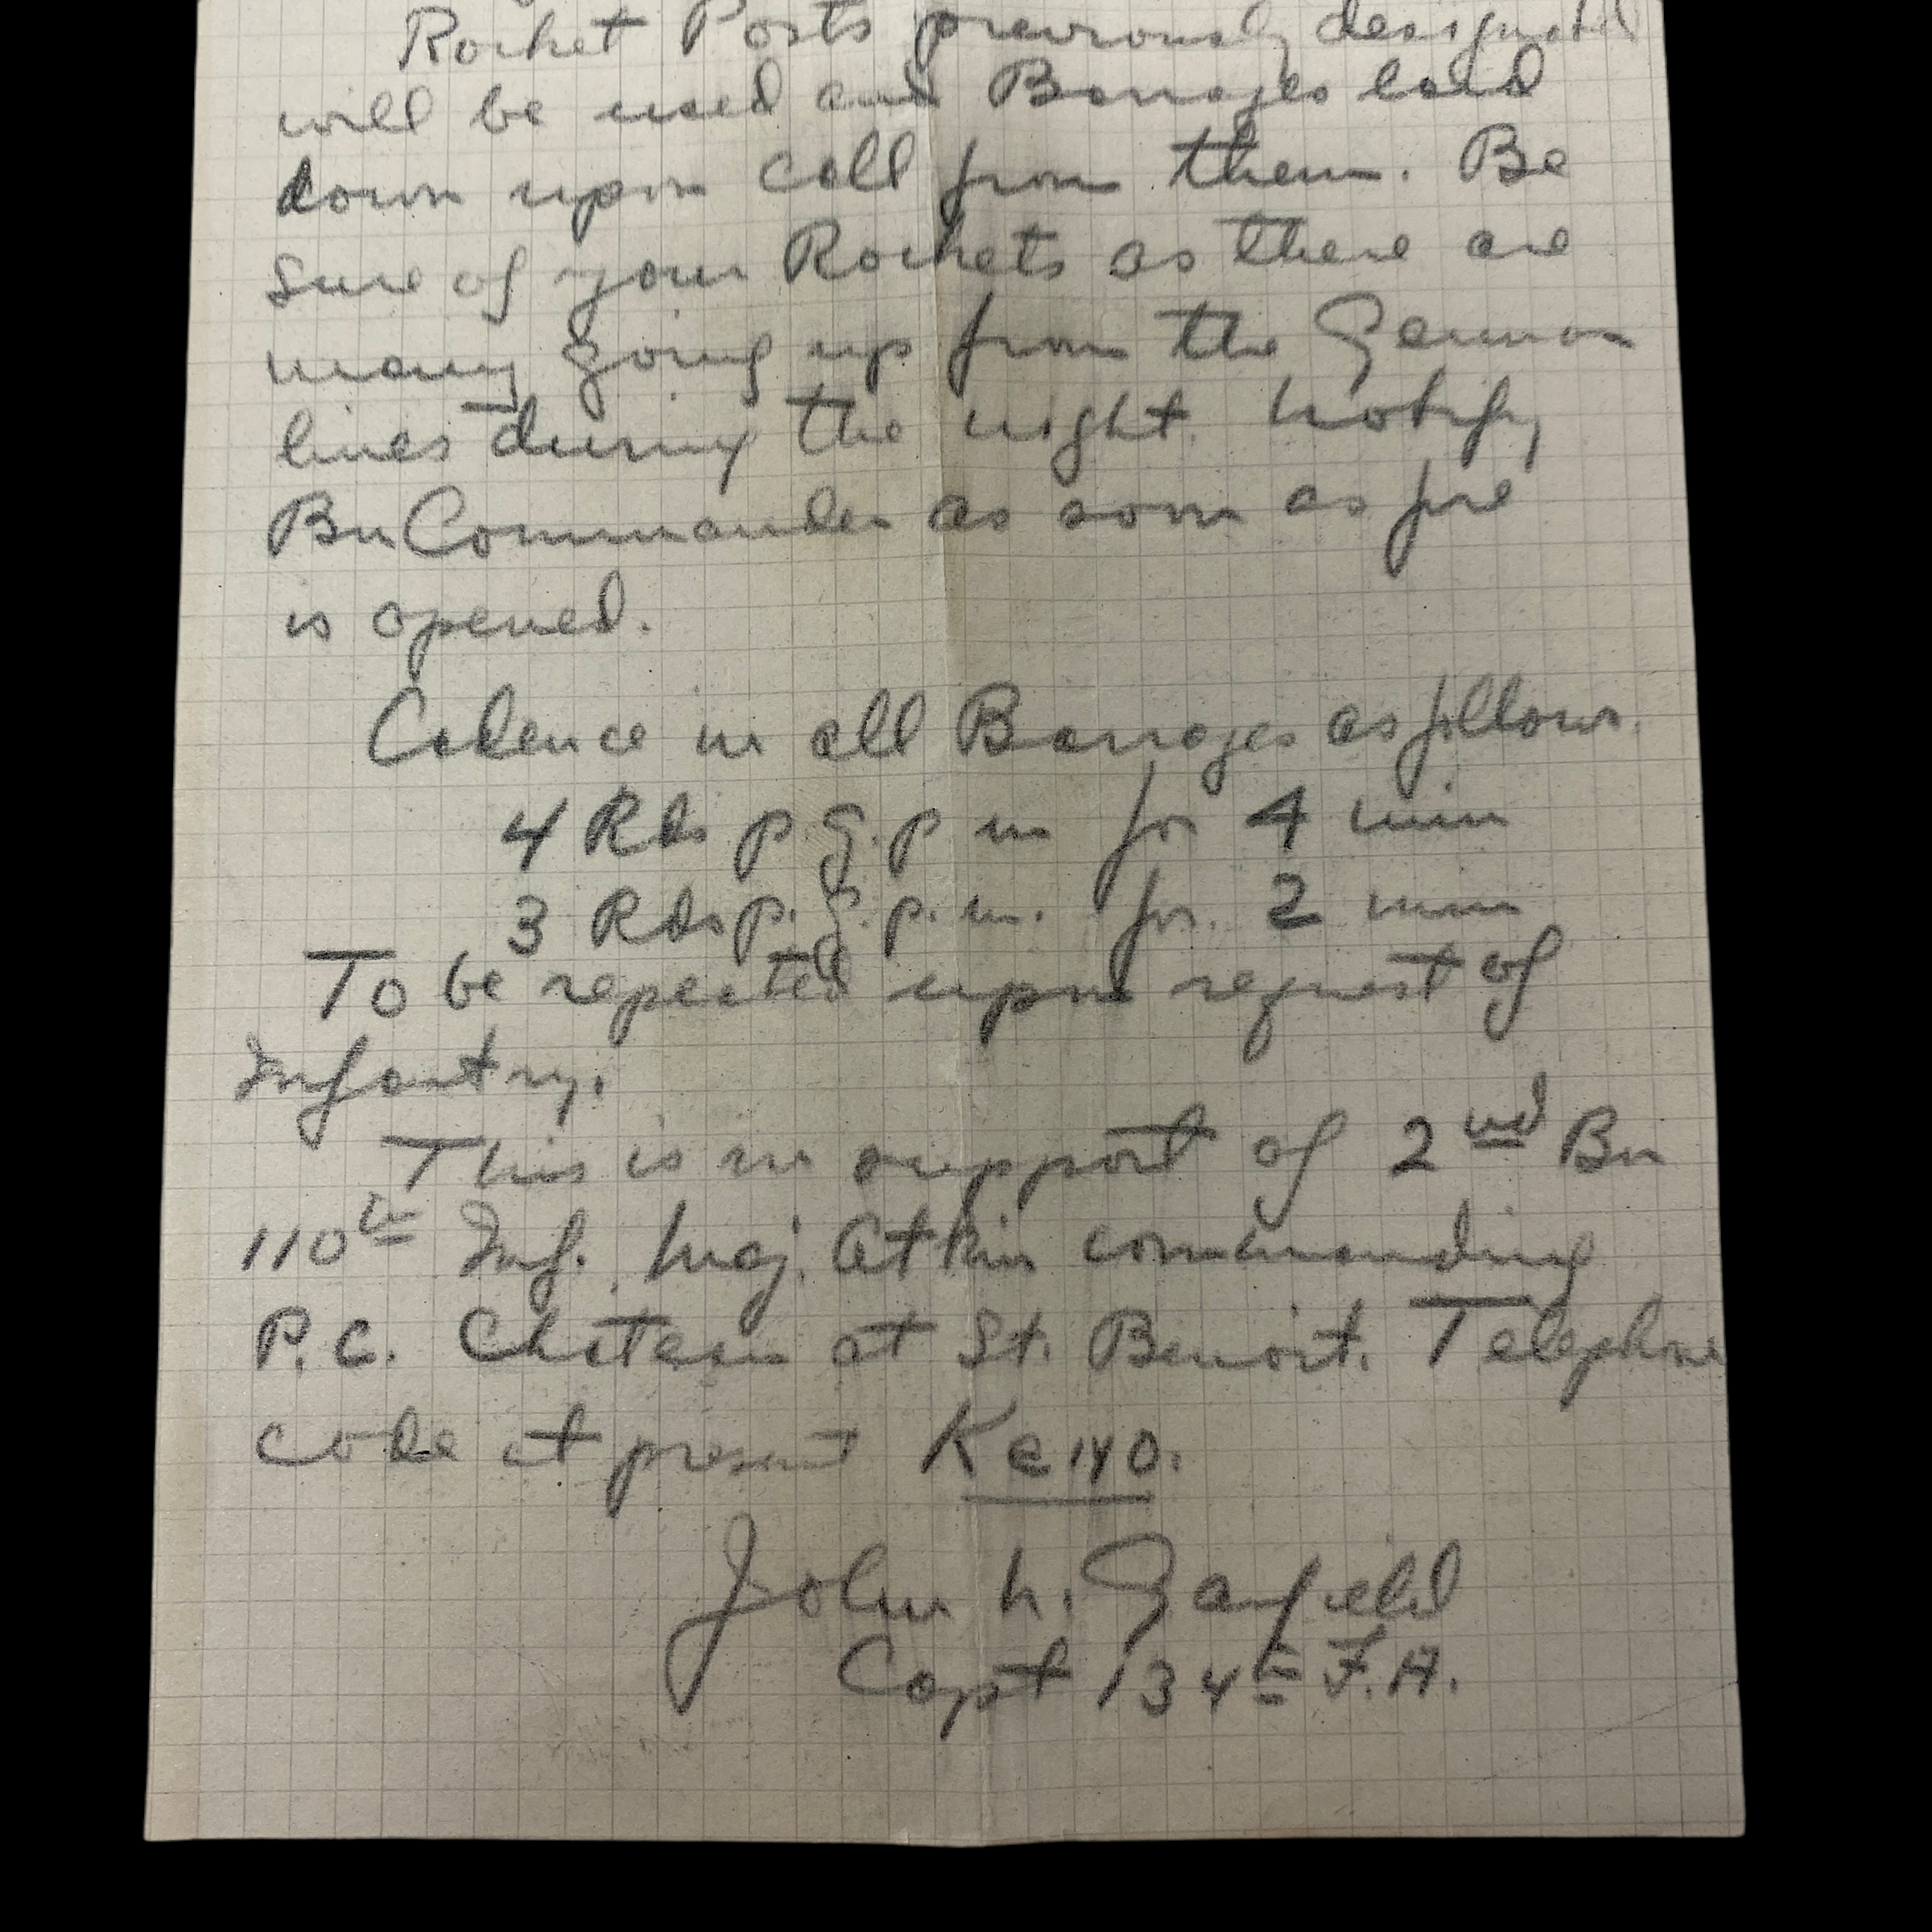 Rocket Posts previously designated
will be used and Barrages laid
down upon call from them. Be
sure of your Rockets as there are
many going up from the German
lines during the night. Notify
Bn Commander as soon as fire
is opened.
Cadence in all Barrages as follows.
4 Rds p.g.p m for 4 min
3 Rds p.g.p.m. for 2 min
To be repeated upon request of
Infantry.
This is in support of 2nd Bn
110th Inf. Maj. Atkin commanding
P.C. Chateau at St. Benoit. Telephone
code at present
John N. Garfield
Capt 134th F.A.